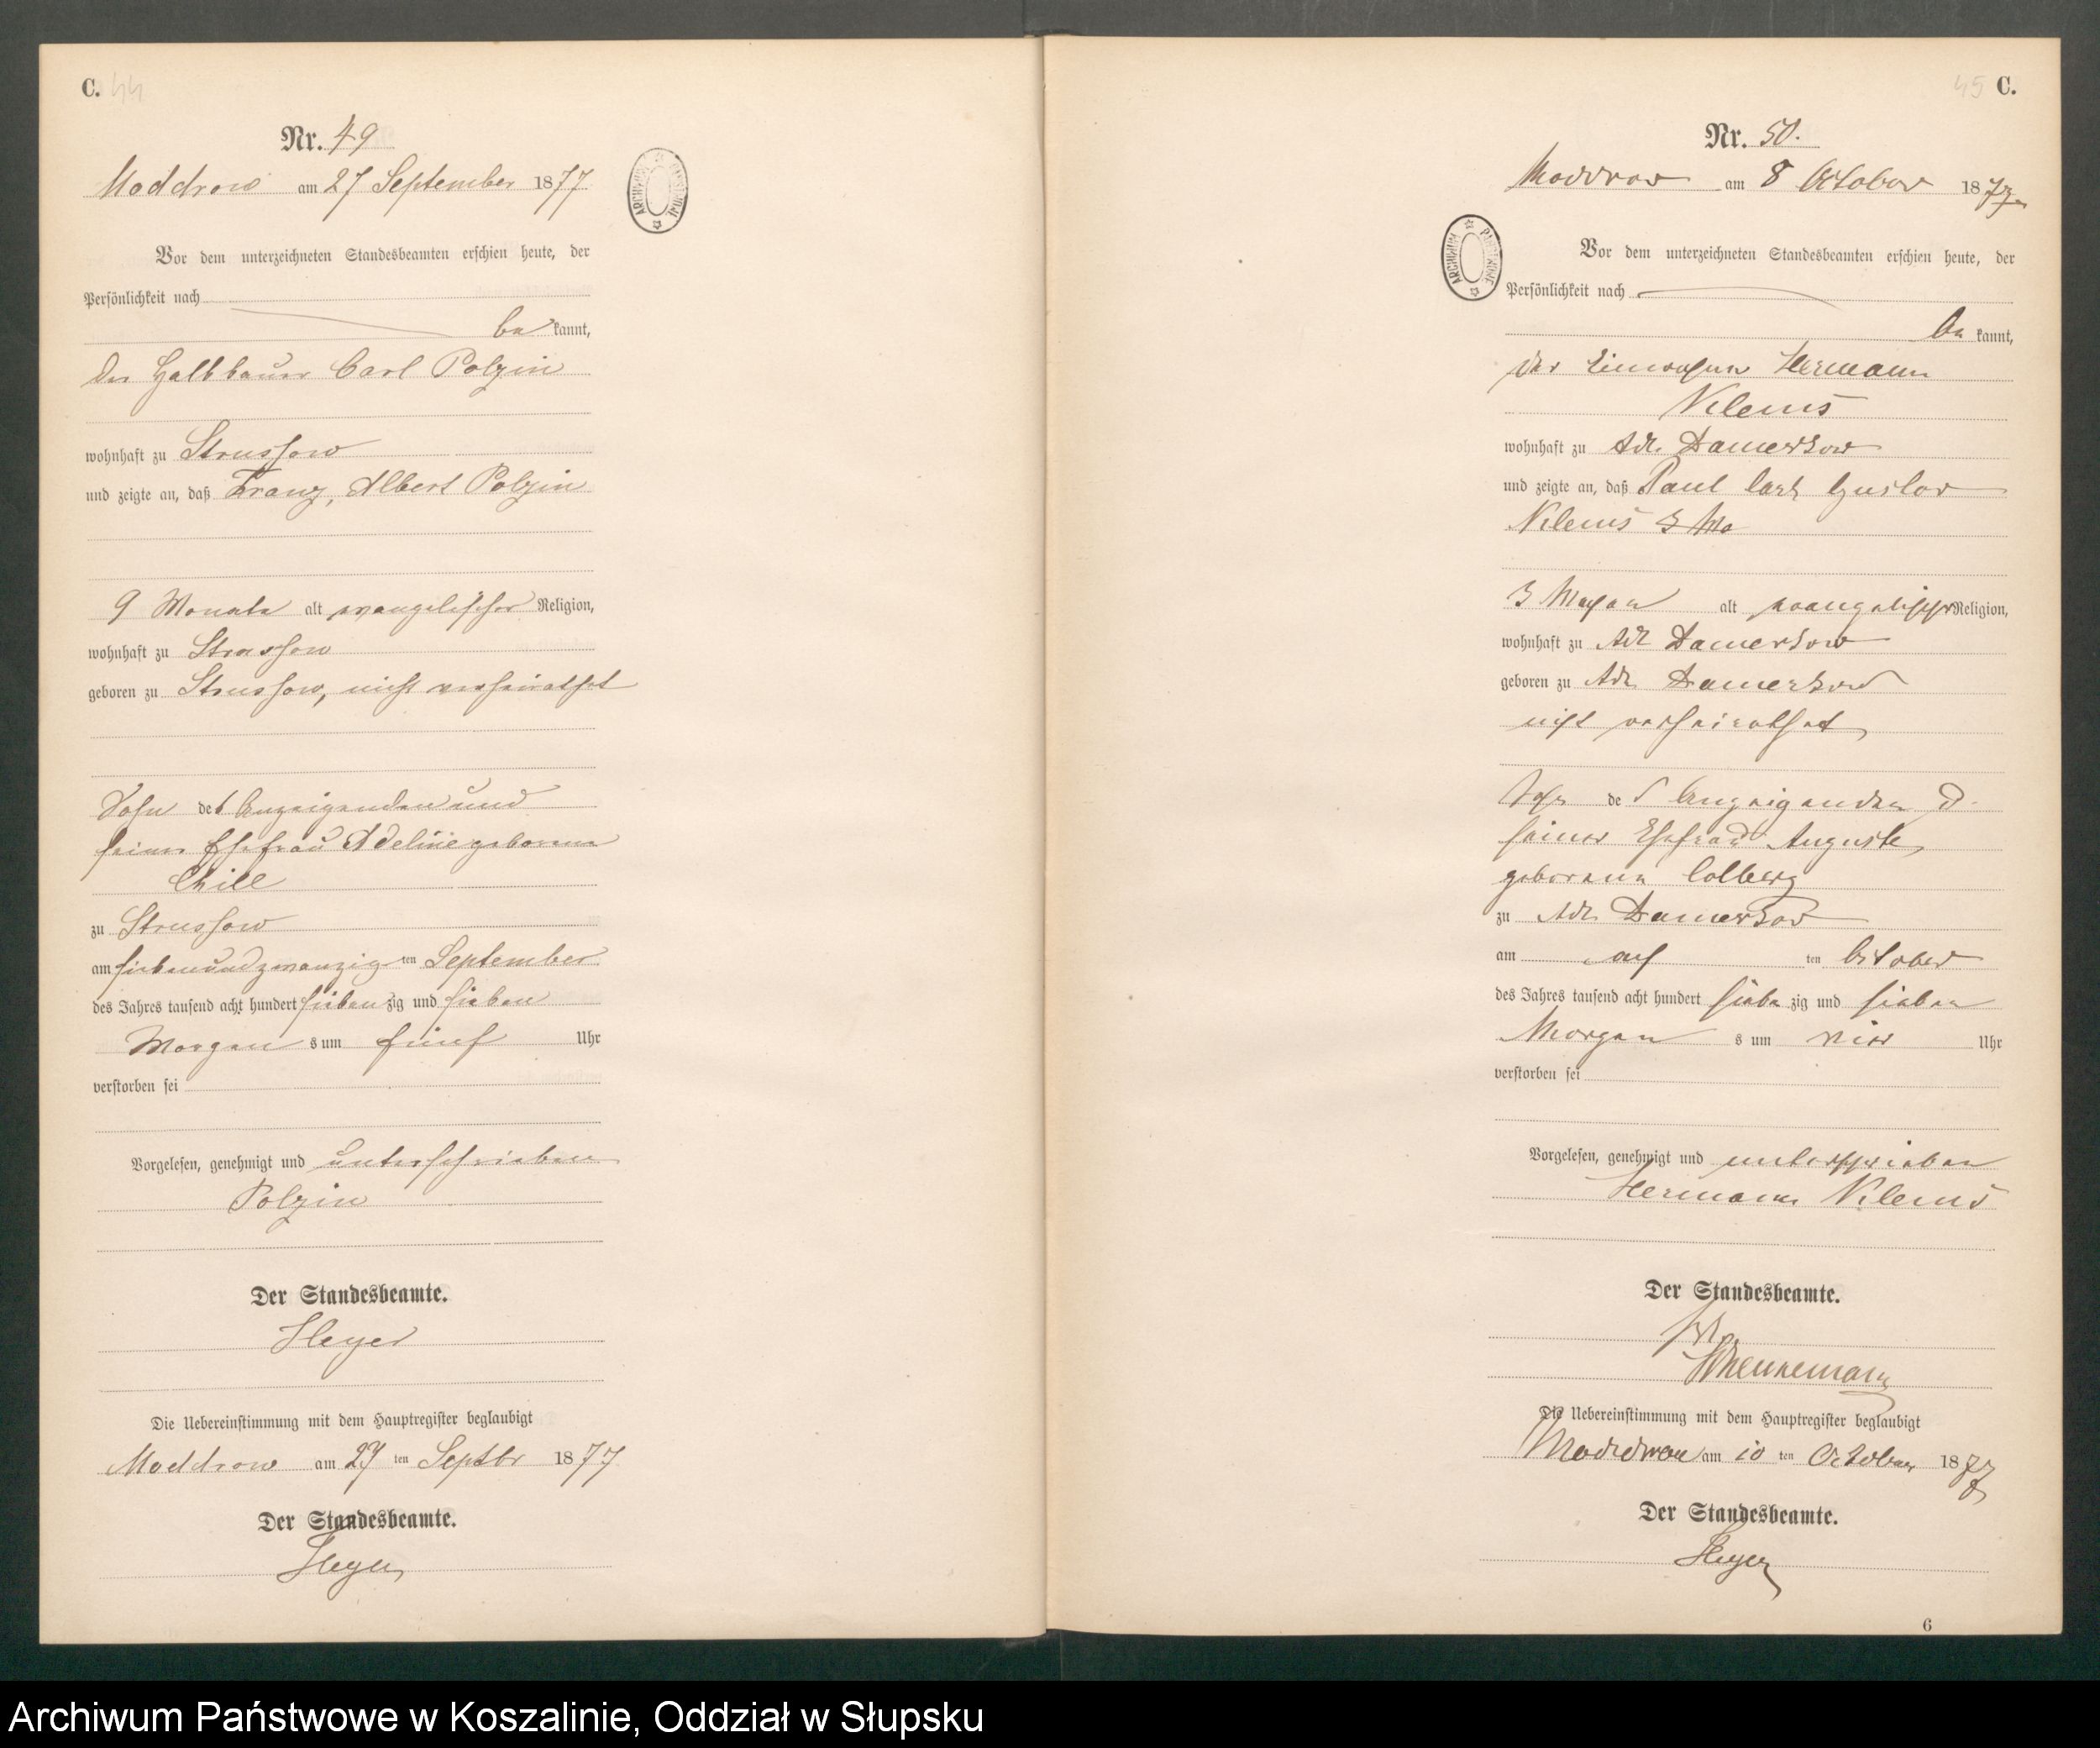 C. 44
Nr. 49
Moddrow am 27 September 1877
ARCHIWUM PAŃSTWOWE
Vor dem unterzeichneten Standesbeamten erschien heute, der
Persönlichkeit nach
be kannt,
der Halbbauer Carl Polzin
wohnhaft zu Strussow
und zeigte an, daß Franz, Albert Polzin
9 Monate alt evangelischer Religion,
wohnhaft zu Strussow
geboren zu Strussow, nicht verheirathet
Sohn des Anzeigenden und
seiner Ehefrau Adeline geborene
Chill
zu Strussow
am siebenundzwanzig ten September
des Jahres tausend acht hundert sieben zig und sieben
Morgen s um fünf Uhr
verstorben sei
Vorgelesen, genehmigt und unterschrieben
Polzin
Der Standesbeamte.
Heyer
Die Uebereinstimmung mit dem Hauptregister beglaubigt
Moddrow am 27 ten Septbr 1877
Der Standesbeamte.
Heyer
45 C.
Nr. 50.
Moddrow am 8 October 1877
ARCHIWUM PAŃSTWOWE
Vor dem unterzeichneten Standesbeamten erschien heute, der
Persönlichkeit nach
be kannt,
der Einwohner Hermann
Klems
wohnhaft zu Adl. Damerkow
und zeigte an, daß Paul Carl Gustav
Klems 3 Wo
3 Wochen alt evangelischer Religion,
wohnhaft zu Adl Damerkow
geboren zu Adl Damerkow
nicht verheirathet
Sohn de s Anzeigenden u.
seiner Ehefrau Auguste
geborene Colberg
zu Adl Damerkow
am acht ten October
des Jahres tausend acht hundert siebe zig und sieben
Morgen s um vier Uhr
verstorben sei
Vorgelesen, genehmigt und unterschrieben
Hermann Klems
Der Standesbeamte.
Die Uebereinstimmung mit dem Hauptregister beglaubigt
Moddrow am 10 ten October 1877
Der Standesbeamte.
Heyer
6
Archiwum Państwowe w Koszalinie, Oddział w Słupsku